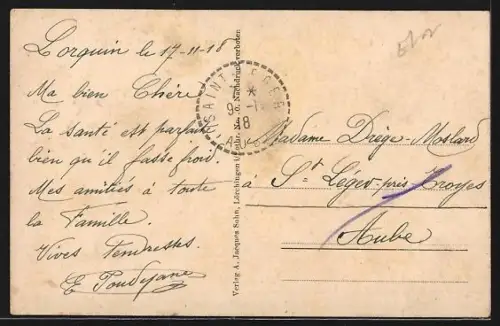 Lorquin le 17-11-18
Ma bien Chère
La santé est parfaite
bien qu'il fasse froid.
Mes amitiés à toute
la Famille.
Vives Tendresses.
E
SAINT LEGER
*
9
18
AUBE
Verlag A. Jacques Sohn, Lörchingen
Nachdruck verboten.
Madame Drège-Moslard
à St Léger-près Troyes
Aube